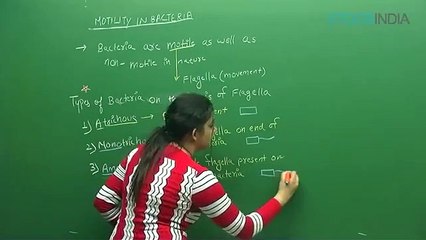 INDIA
MOTILITY IN BACTERIA
→ Bacteria are motile as well as
non-motile in nature
Flagella (movement)
* Types of Bacteria on of Flagella
1) Atrichous
2) Monotricho on end of
3) Am flagella present on
bacteria